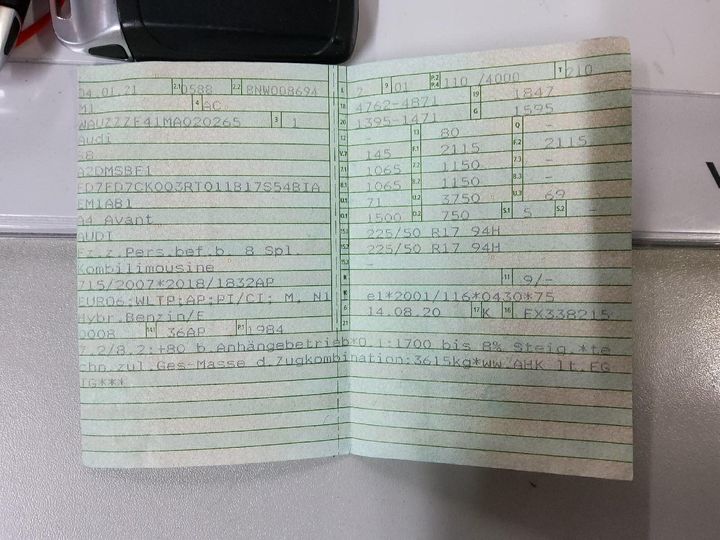 04.01.21 2.1 0588 2.2 BNW008694
M1 4 AC
WAUZZZF41MA020265 3 1
Audi
B8
A2DMSBF1
FD7FD7CK003RT011B17S54BIA
EM1A81
A4 Avant
AUDI
Fz.z.Pers.bef.b. 8 Spl.
Kombilimousine
715/2007*2018/1832AP
EURO6;WLTP;AP;PI/CI; M, N1
Hybr.Benzin/E
0008 14.1 36AP P.1 1984
L 2 9 01 P.2 P.4 110 /4000 T 210
18 4762-4871 19 1847
20 1395-1471 G 1595
12 - 13 80 Q -
V.7 145 F.1 2115 F.2 2115
7.1 1065 7.2 1150 7.3 -
8.1 1065 8.2 1150 8.3 -
U.1 71 U.2 3750 U.3 69
O.1 1500 O.2 750 S.1 5 S.2 -
15.1 225/50 R17 94H
15.2 225/50 R17 94H
15.3 -
R 11 9/-
K e1*2001/116*0430*75
6 14.08.20 17 K 16 FX338215
21
7.2/8.2:+80 b.Anhängebetrieb*O.1:1700 bis 8% Steig.*te
chn.zul.Ges-Masse d.Zugkombination:3615kg*ww.AHK lt.EG
TG***